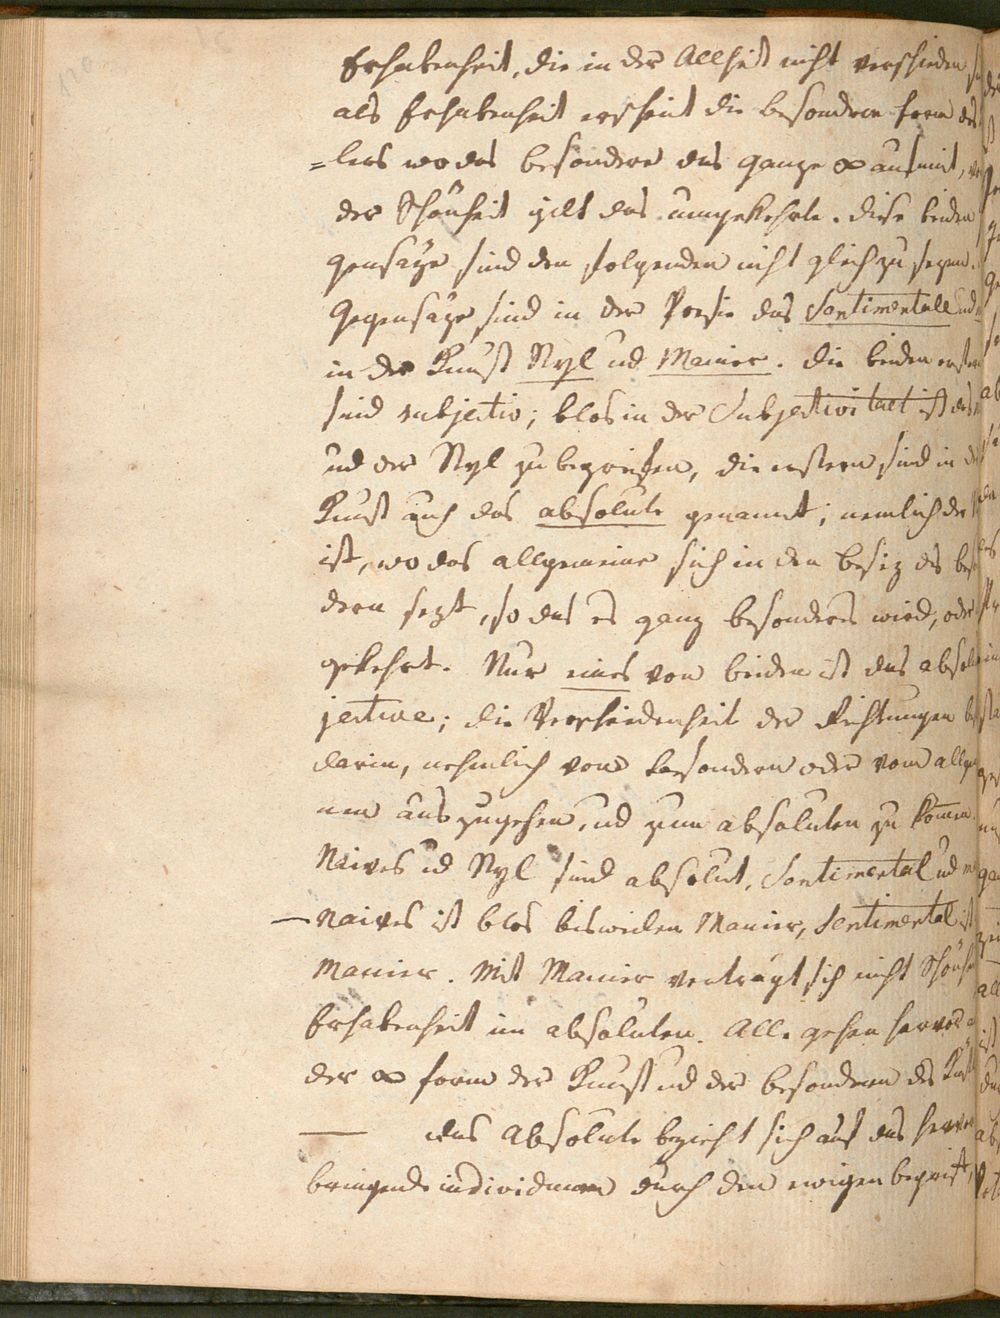 Erhabenheit, die in der Allheit nicht verschieden
als Erhabenheit erscheint die besondere Form des
=lers wo das besondere das ganze ∞ aufnimt,
der Schönheit gilt das umgekehrte. diese beiden
gensäze sind den folgenden nicht gleich zu sezen.
Gegensäze sind in der Poesie das Sentimentale und
in der Kunst Styl ud Manier. die beiden ersten
sind subjectiv; blos in der Subjectivitaet ist das
ud der Styl zu begreifen, die erstern sind in
Kunst auch das absolute genannt; nemlich der
ist, wo das allgemeine sich in den besiz des bes
dern sezt, so das es ganz besonders wird, oder
gekehrt. Nur eines von beiden ist das absol
jective; die Verschiedenheit der Richtungen
darin, nehmlich vom besondern oder vom allge
nen auszugehen, ud zum absoluten zu komen.
Naives ud Styl sind absolut, Sentimental ud
— Naives ist blos bisweilen Manier, Sentimental ist
Manier. Mit Manier verträgt sich nicht Schönh
Erhabenheit im absoluten. All. gehen hervor
der ∞ form der Kunst ud der besondern des
— das Absolute bezieht sich auf das hervor
bringende individuum durch den ewigen begriff,